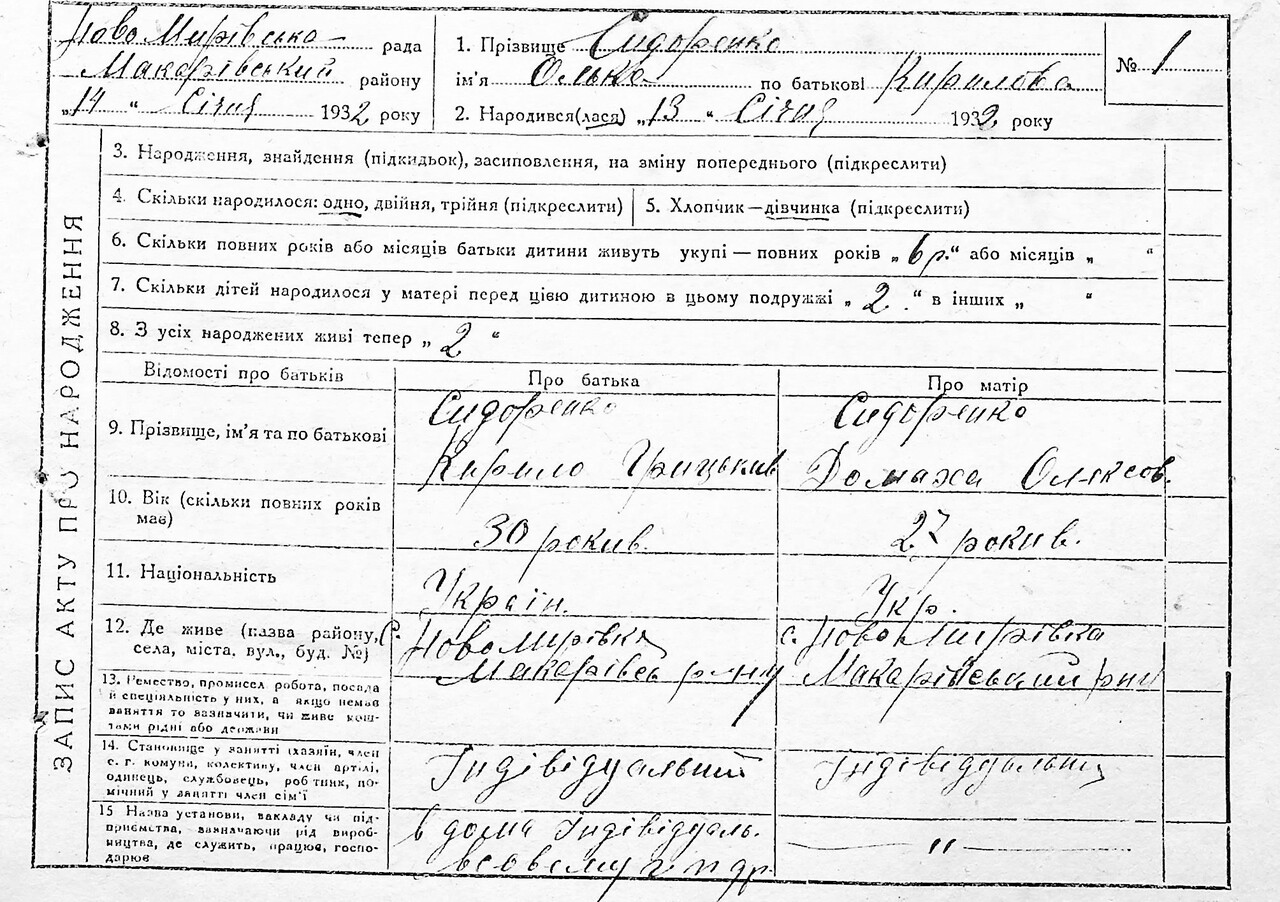 Ново Мирівсько рада
Макарівський району
„14 “ Січня 1932 року
1. Прізвище Сидоренко
ім'я Олька по батькові Кирилова
2. Народився(лася) „13 “ Січня 1932 року
№ 1
ЗАПИС АКТУ ПРО НАРОДЖЕННЯ
3. Народження, знайдення (підкидьок), засиповлення, на зміну попереднього (підкреслити)
4. Скільки народилося: одно, двійня, трійня (підкреслити)
5. Хлопчик—дівчинка (підкреслити)
6. Скільки повних років або місяців батьки дитини живуть укупі — повних років „ 6 р.“ або місяців „ “
7. Скільки дітей народилося у матері перед цією дитиною в цьому подружжі „ 2 “ в інших „ “
8. З усіх народжених живі тепер „ 2 “
Відомості про батьків
Про батька
Про матір
9. Прізвище, ім'я та по батькові
Сидоренко
Кирило Грицьків
Сидоренко
Домаха Олексов.
10. Вік (скільки повних років
має)
30 рокив.
27 рокив.
11. Національність
Україн.
Укр.
12. Де живе (назва району,
села, міста, вул., буд. №)
с. Ново Мирівка
Макарівськ р-ну
с. Ново Мирівка
Макарівський рну
13. Ремество, промисел робота, посада
й спеціяльність у них, а якщо немає
заняття то зазначити, чи живе кош-
тами рідні або держави
14. Становище у занятті (хазяїн, член
с. г. комуни, колективу, член артілі,
одинець, службовець, робітник, по-
мічний у занятті член сім'ї
Індівідуальний
Індівідуальний
15 Назва установи, закладу чи під-
приємства, зазначаючи рід вироб-
ництва, де служить, працює, госпо-
дарює
в дома Індівідуаль.
— " —